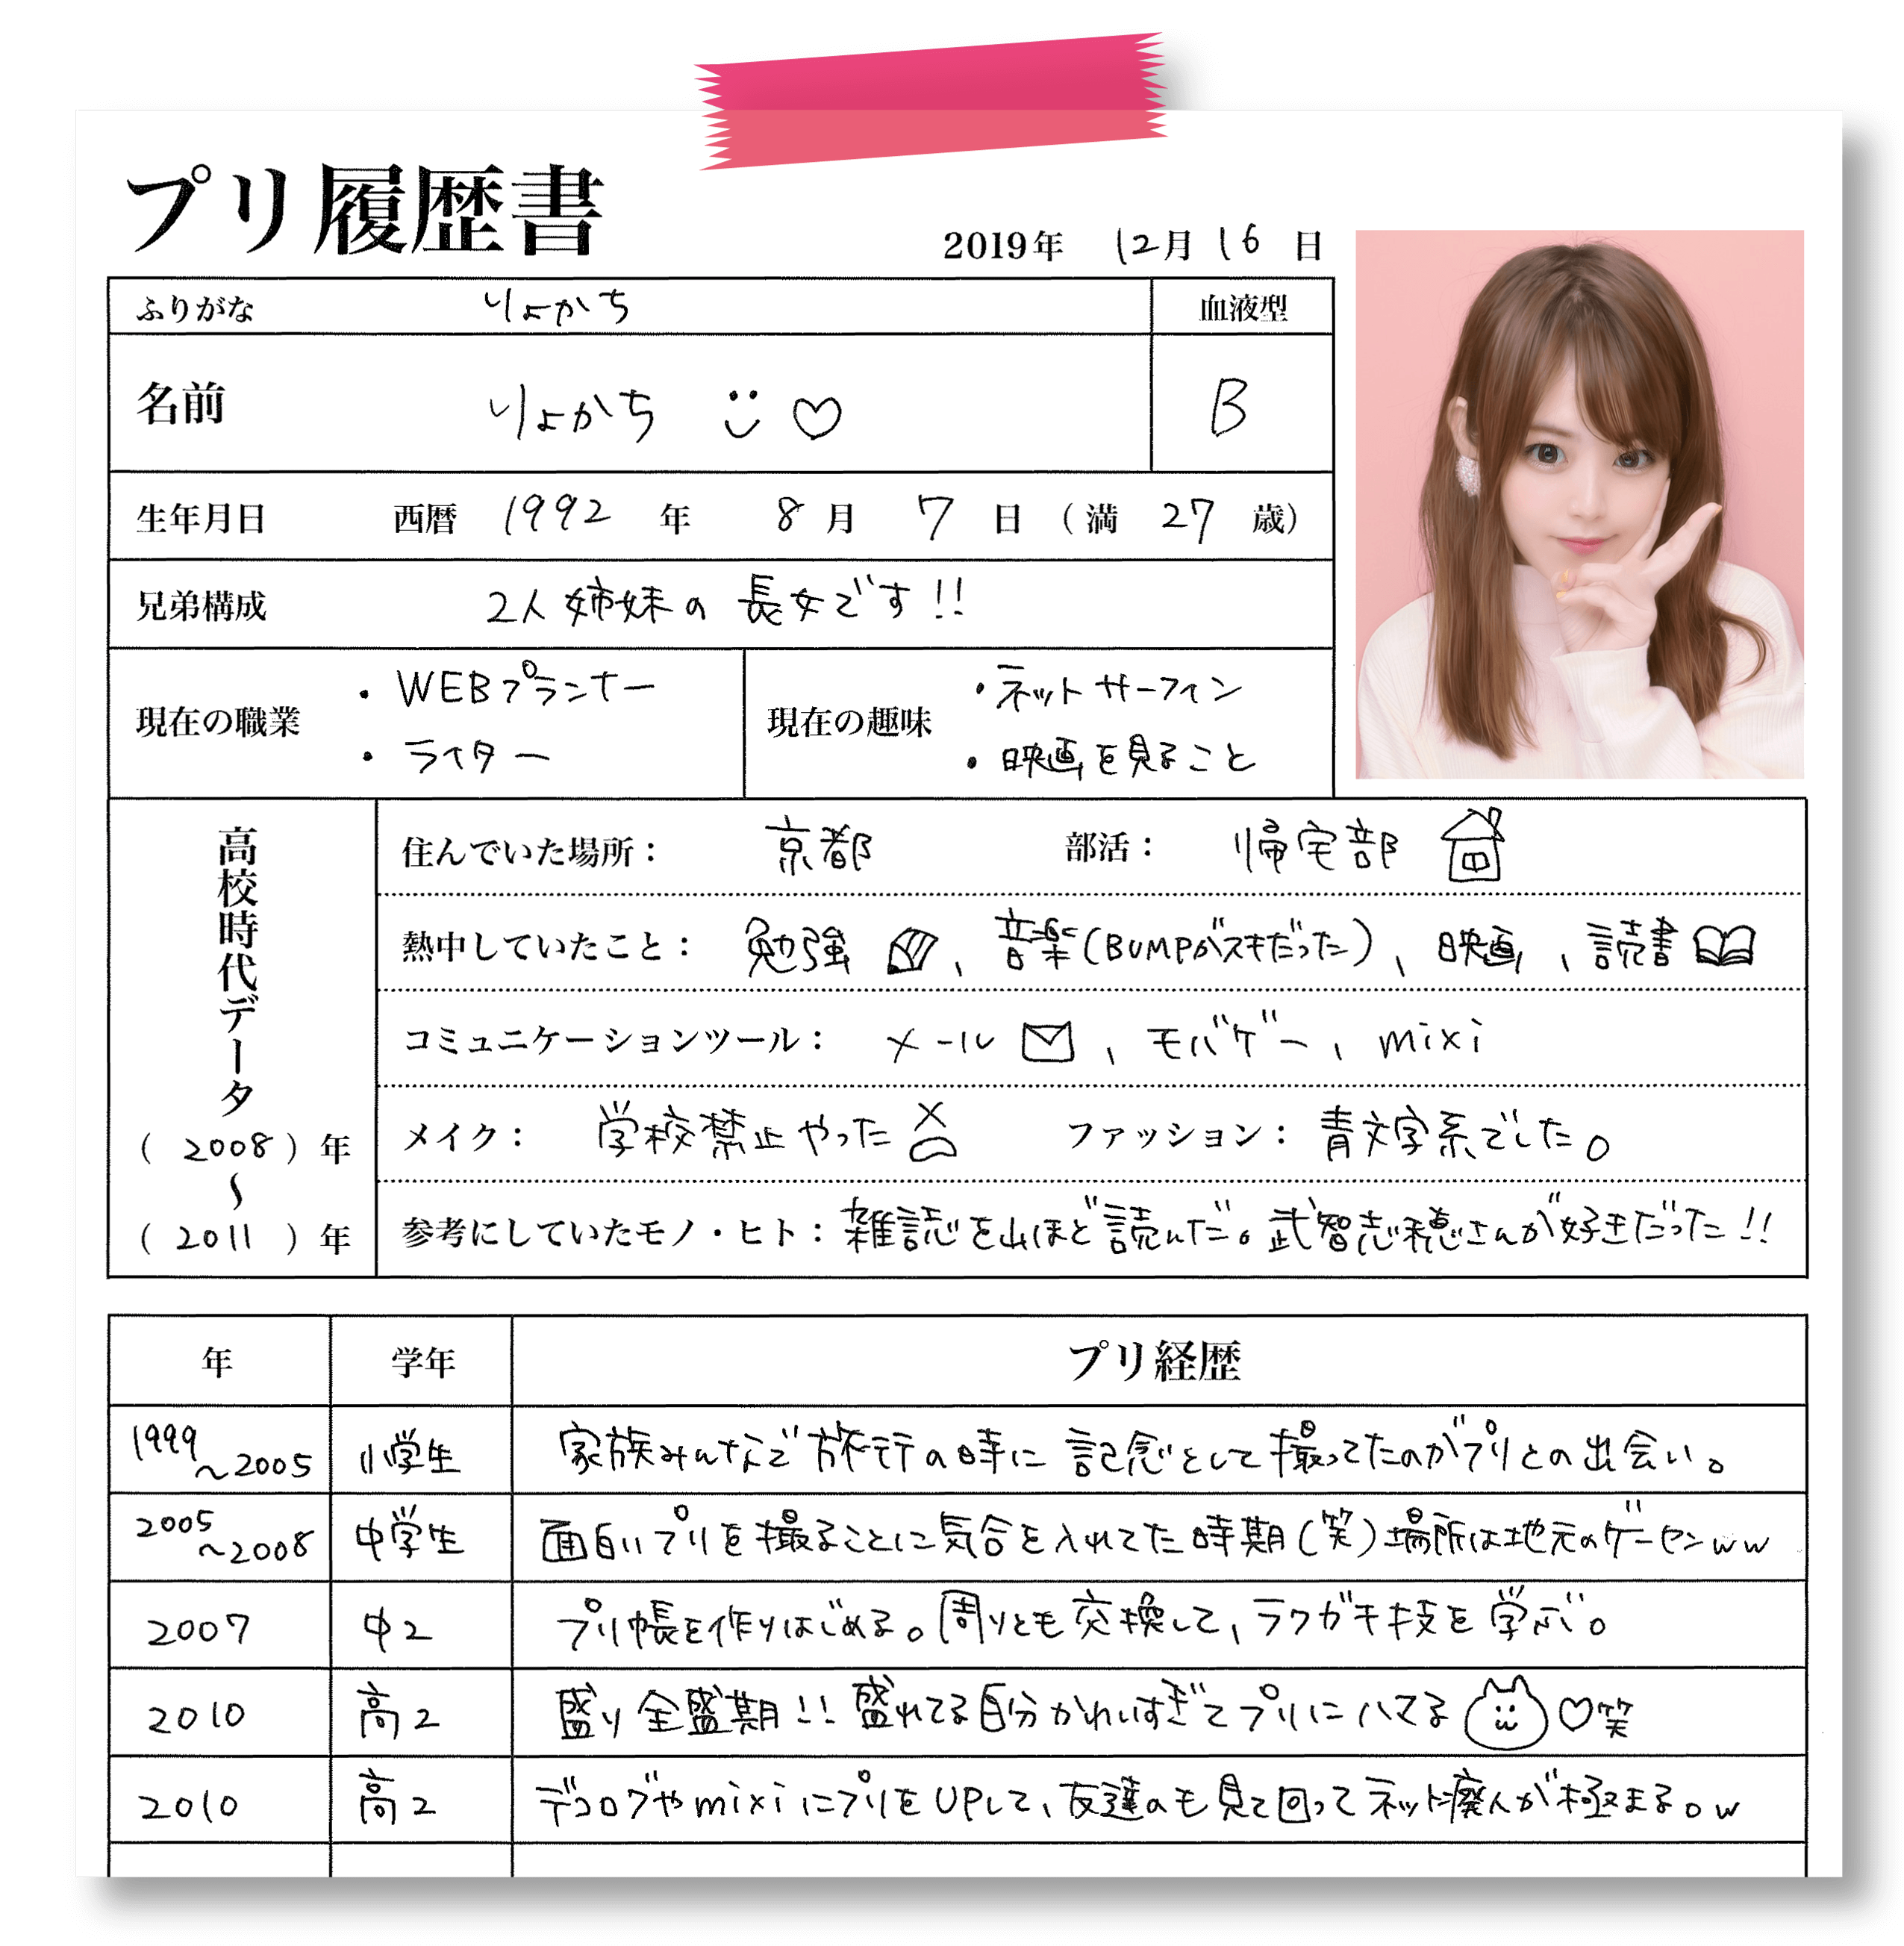 プリ履歴書
2019年 12月 16日
ふりがな りょかち 血液型
名前 りょかち B
生年月日 西暦 1992 年 8 月 7 日 (満 27 歳)
兄弟構成 2人姉妹の長女です!!
現在の職業 ・WEBプランナー ・ライター
現在の趣味 ・ネットサーフィン ・映画を見ること
高校時代データ
( 2008 ) 年
〜
( 2011 ) 年
住んでいた場所: 京都 部活: 帰宅部
熱中していたこと: 勉強、音楽(BUMPがスキだった)、映画、読書
コミュニケーションツール: メール、モバゲー、mixi
メイク: 学校禁止やった ファッション: 青文字系でした。
参考にしていたモノ・ヒト: 雑誌を山ほど読んだ。武智志穂さんが好きだった!!
年 学年 プリ経歴
1999〜2005 小学生 家族みんなで旅行の時に記念として撮ってたのがプリとの出会い。
2005〜2008 中学生 面白いプリを撮ることに気合を入れてた時期(笑)場所は地元のゲーセンww
2007 中2 プリ帳を作りはじめる。周りとも交換して、ラクガキ技を学ぶ。
2010 高2 盛り全盛期!!盛れてる自分かわいすぎてプリにハマる♡笑
2010 高2 デコログやmixiにプリをUPして、友達のも見て回ってネット廃人が極まる。w